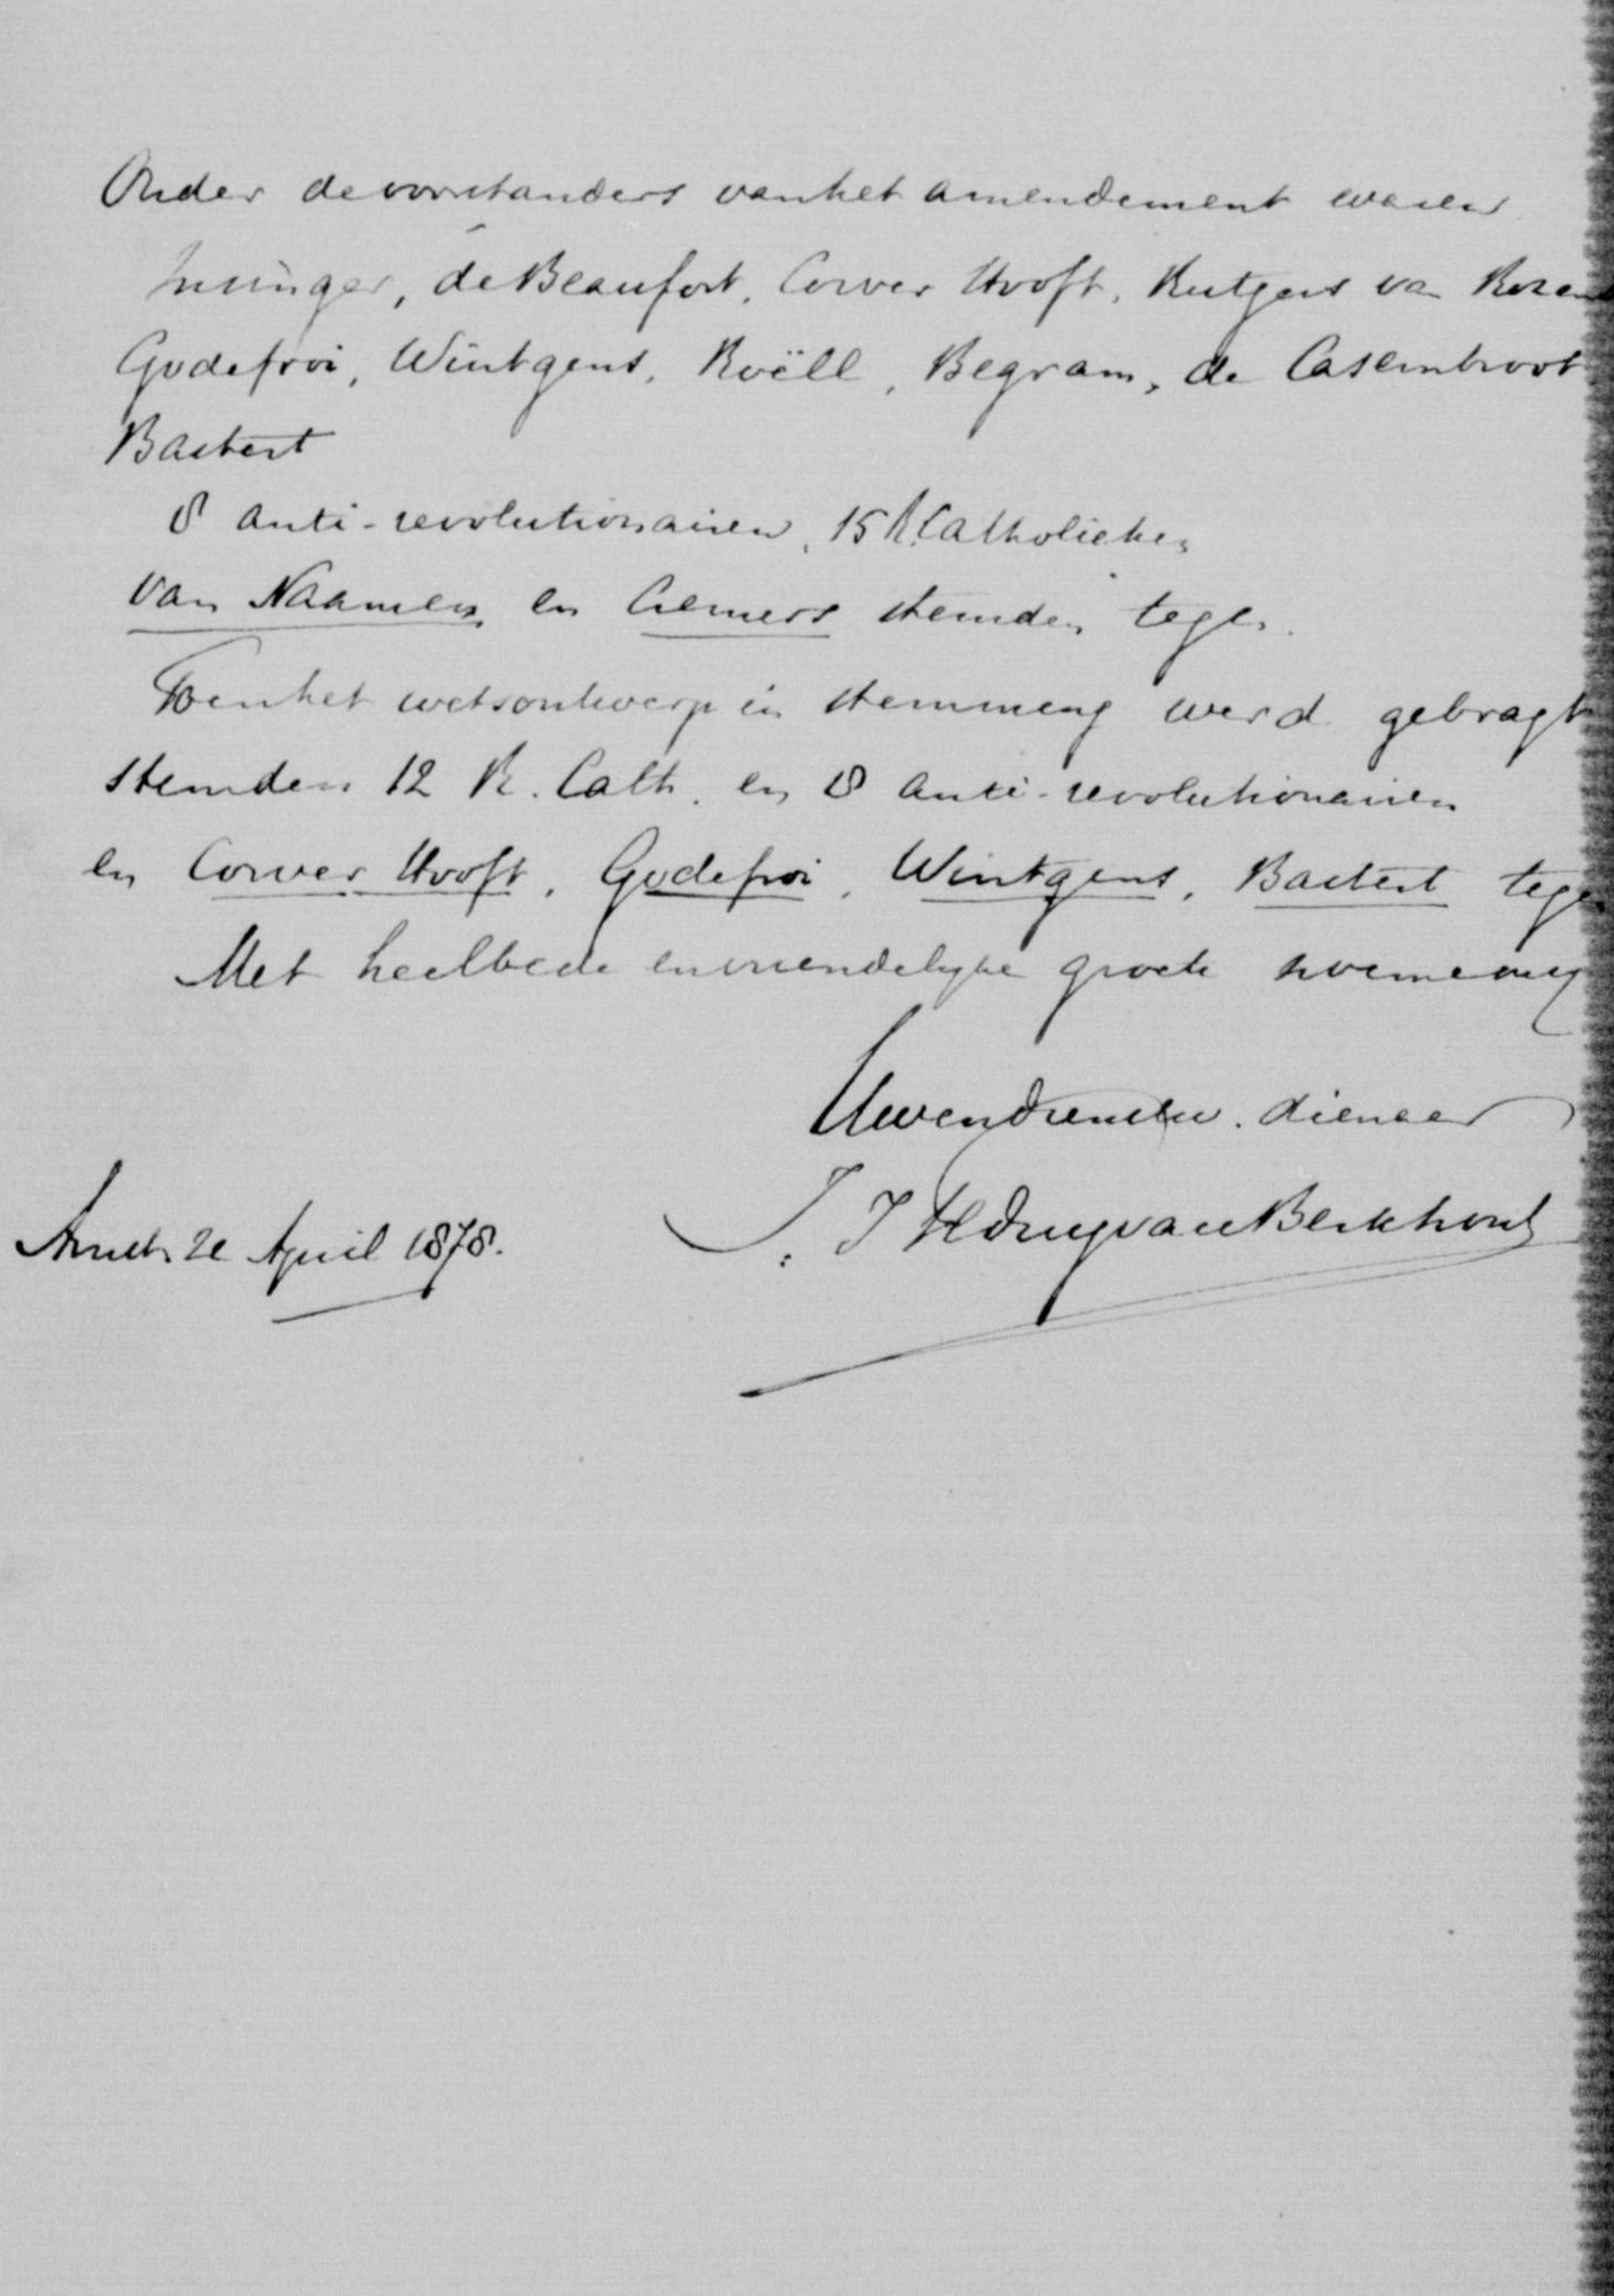 Onder de voorstanders van het amendement waren
Insinger, de Beaufort, Corver Hooft, Rutgers van Rozen
Godefroi, Wintgens, Roëll, Begram, de Casembroot
Bastert
8 anti-revolutionairen, 15 R. Catholieken
van Naamen en Cremers stemden tegen.
Toen het wetsontwerp in stemming werd gebragt
stemden 12 R. Cath. en 8 anti-revolutionairen
en Corver Hooft, Godefroi, Wintgens, Bastert tegen
Met heilbede en vriendelyke groete noem ik my
Uwen dienstw. dienaar
J. J Teding van Berkhout
Amst. 2e April 1878.